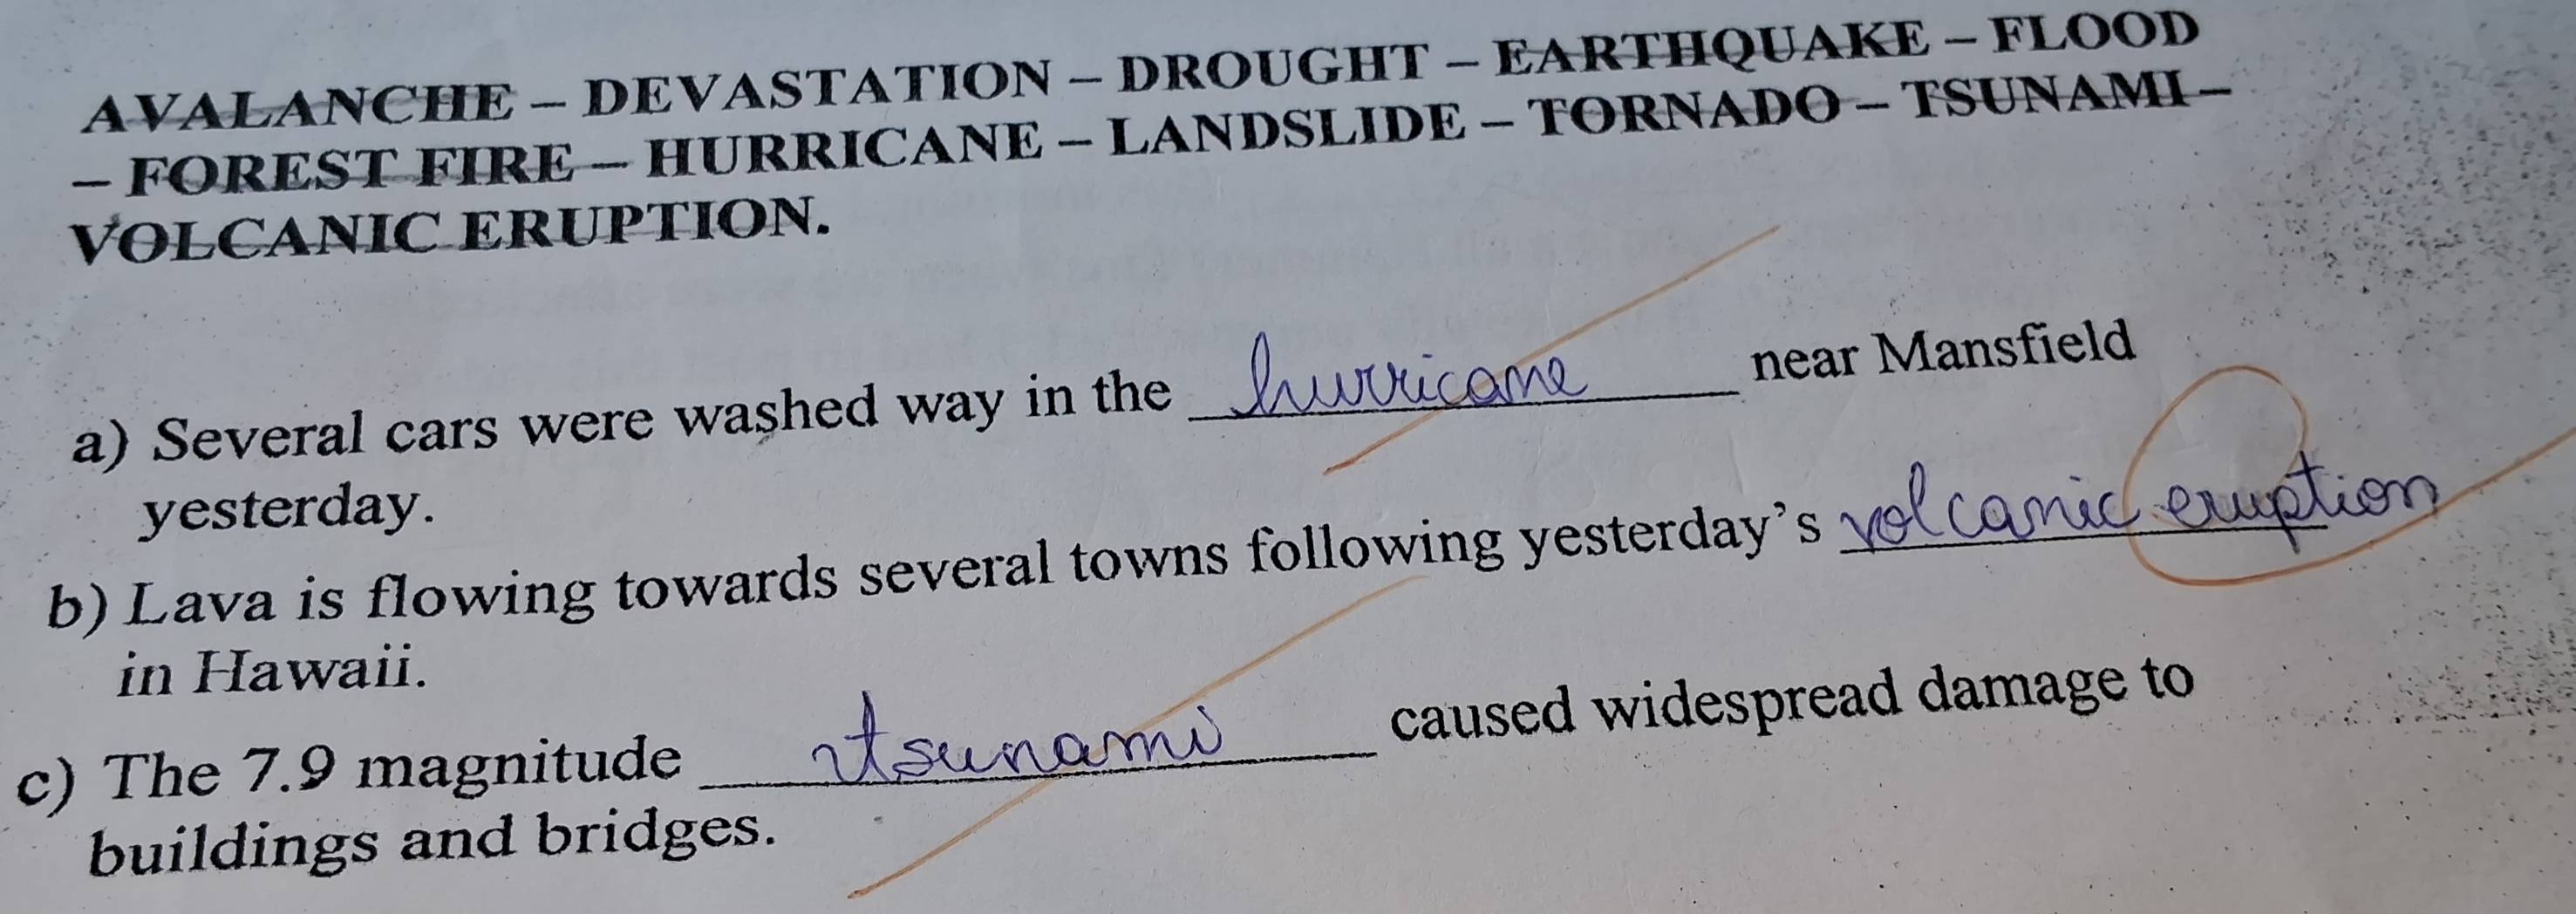 AVALANCHE – DEVASTATION – DROUGHT – EARTHQUAKE – FLOOD
– FOREST FIRE – HURRICANE – LANDSLIDE – TORNADO – TSUNAMI –
VOLCANIC ERUPTION.
a) Several cars were washed way in the hurricane near Mansfield
yesterday.
b) Lava is flowing towards several towns following yesterday's volcanic eruption
in Hawaii.
c) The 7.9 magnitude tsunami caused widespread damage to
buildings and bridges.